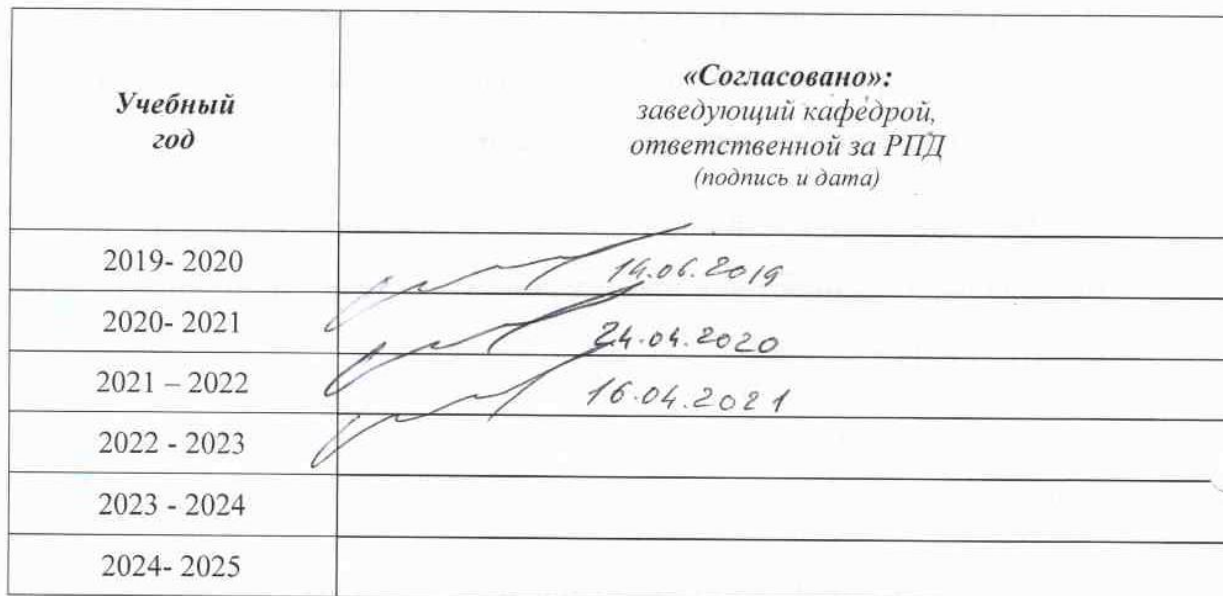 Учебный
год
«Согласовано»:
заведующий кафедрой,
ответственной за РПД
(подпись и дата)
2019- 2020
14.06.2019
2020- 2021
24.04.2020
2021 – 2022
16.04.2021
2022 - 2023
2023 - 2024
2024- 2025